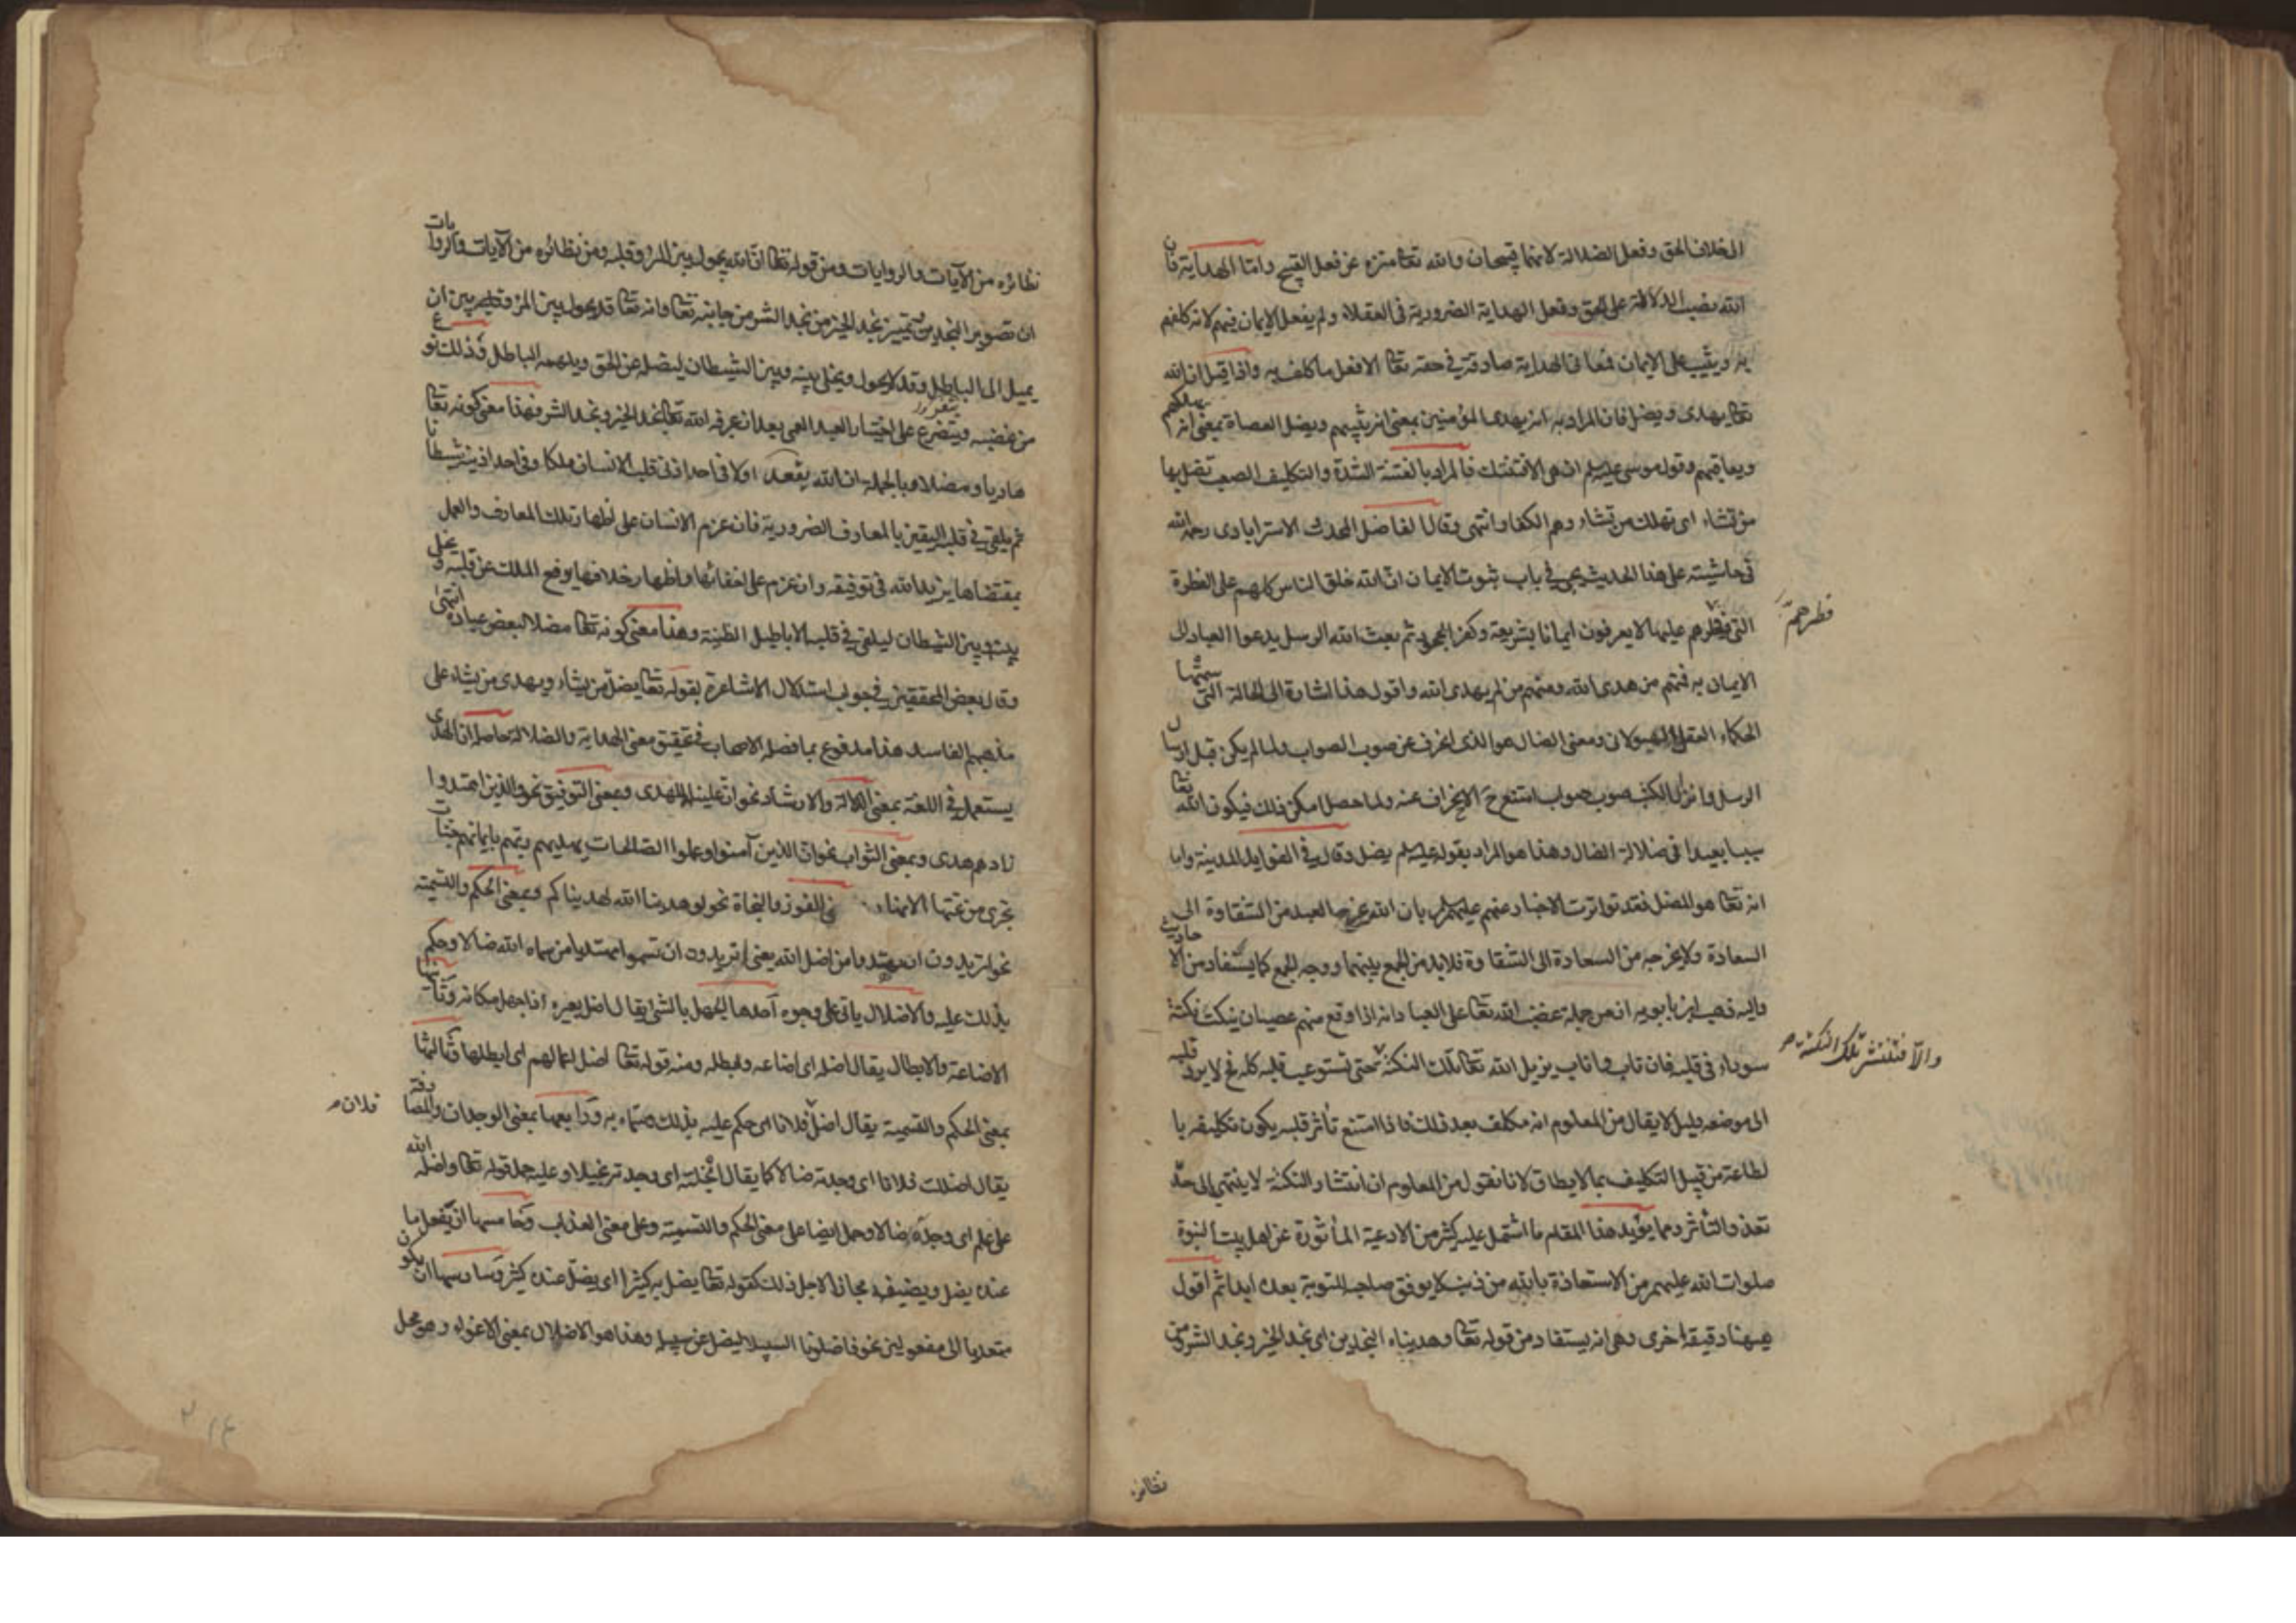 الى خلاف الحق وفعل الضلالة لانهما قبيحان والله تعا منزه عن فعل القبيح واما الهداية فان
الله نصب الدلالة على الحق وفعل الهداية الضرورية في العقلاء ولم يفعل الايمان فيهم لانه كلفهم
به ويثيب على الايمان فمعاني الهداية صادقة في حقه تعا الا فعل ما كلف به واذا قيل ان الله
تعا يهدى ويضل فان المراد به انه يهدى المؤمنين بمعنى انه يثيبهم ويضل العصاة بمعنى انه يهلكهم
ويعاقبهم وقول موسى عليه السلم ان هى الا فتنتك فالمراد بالفتنة الشدة والتكليف الصعب تضل بها
من تشاء اى تهلك من تشاء وهم الكفار انتهى وقال الفاضل المحدث الاسترابادى رحمه الله
في حاشيته على هذا الحديث يجي في باب ثبوت الايمان ان الله خلق الناس كلهم على الفطرة
التي فطرهم عليها لا يعرفون ايمانا بشريعة وكفرا بجحود ثم بعث الله الرسل يدعوا العباد الى
فطرهم
الايمان به فمنهم من هدى الله ومنهم من لم يهدى الله واقول هذا اشارة الى الحالة التي سمتها
الحكماء العقل الهيولاني ومعنى الضال هو الذى انحرف عن صوب الصواب ولما لم يكن قبل ارسال
الرسل وانزال الكتب صوب صواب امتنع ح الانحراف عنه ولما حصل امكن ذلك فيكون الله تعا
سببا بعيدا في ضلالة الضال وهذا هو المراد بقوله عليه السلم يضل وقال في الفوايد المدينة واما
انه تعا هو المضل فقد تواترت الاخبار عنهم عليهم السلم بان الله عز وجل يخرج العبد من الشقاوة الى
السعادة ولا يخرجه من السعادة الى الشقاوة فلابد من الجمع بينهما ووجه الجمع كما يستفاد من الاحاديث
واليه ذهب ابن بابويه ان من جملة غضب الله تعا على العباد انه اذا وقع منهم عصيان ينكت نكتة
سوداء في قلبه فان تاب واناب يزيل الله تعا تلك النكتة حتى تستوعب قلبه كله فح لا يرد قلبه
والا فتنتشر تلك النكتة
الى موضعه بدليل لا يقال من المعلوم انه مكلف بعد ذلك فاذا امتنع تأثر قلبه يكون تكليفه با
لطاعة من قبيل التكليف بما لا يطاق لانا نقول من المعلوم ان انتشار النكتة لا ينتهى الى حد
تعذر التأثر ومما يؤيد هذا المقام ما اشتمل عليه كثير من الادعية المأثورة عن اهل بيت النبوة
صلوات الله عليهم من الاستعاذة بالله من ذنب لا يوفق صاحبه للتوبة بعده ابدا ثم اقول
هيهنا دقيقة اخرى وهى انه يستفاد من قوله تعا وهديناه النجدين اى نجد الخير ونجد الشر ومن
نظائره
نظائره من الآيات والروايات ومن قوله تعا ان الله يحول بين المرء وقلبه ومن نظائره من الآيات والروايات
ان تصوير النجدين وتمييز نجد الخير من نجد الشر من جانبه تعا وانه تعا قد يحول بين المرء وقلبه بين ان
يميل الى الباطل وقد لا يحول ويخلى بينه وبين الشيطان ليضله عن الحق ويلهمه الباطل وذلك نوع
من غضبه ويتفرع على اختيار العبد العمى بعد ان عرفه الله تعا نجد الخير ونجد الشر فهذا معنى كونه تعا
هاديا ومضلا وبالجملة ان الله يقعد اولا في احد اذنى قلب الانسان ملكا وفي احد اذنيه شيطانا
ثم يلقى في قلبه اليقين بالمعارف الضرورية فان عزم الانسان على اظهار تلك المعارف والعمل
بمقتضاها يزيد الله في توفيقه وان عزم على اخفائها واظهار خلافها يرفع الملك عن قلبه ويخلى
بينه وبين الشيطان ليلقى في قلبه الاباطيل الظنية وهذا معنى كونه تعا مضلا لبعض عباده انتهى
وقال بعض المحققين في جواب استدلال الاشاعرة بقوله تعا يضل من يشاء ويهدى من يشاء على
مذهبهم الفاسد هذا مدفوع بما فصله الاصحاب في تحقيق معنى الهداية والضلالة حاصله ان الهدى
يستعمل في اللغة بمعنى الدلالة والارشاد نحو ان علينا للهدى وبمعنى التوفيق نحو والذين اهتدوا
زادهم هدى وبمعنى الثواب نحو ان الذين آمنوا وعملوا الصالحات يهديهم ربهم بايمانهم جنات
تجرى من تحتها الانهار في الفوز والنجاة نحو لو هدينا الله لهديناكم وبمعنى الحكم والتسمية
نحو اتريدون ان تهتدوا من اضل الله يعنى اتريدون ان تسموا مهتديا من سماه الله ضالا وحكم
بذلك عليه والاضلال ياتى على وجوه احدها الجهل بالشئ يقال اضل بعيره اذا جهل مكانه وثانيها
الاضاعة والابطال يقال اضله اى اضاعه وابطله ومنه قوله تعا اضل اعمالهم اى ابطلها وثالثها
بمعنى الحكم والتسمية يقال اضل فلانا اى حكم عليه بذلك وسماه به ورابعها بمعنى الوجدان والمصادفة
فلان
يقال اضللت فلانا اى وجدته ضالا كما يقال ابخلته اى وجدته بخيلا وعليه حمل قوله تعا واضله الله
على علم اى وجده ضالا وحمل ايضا على معنى الحكم والتسمية وعلى معنى العذاب وخامسها ان يفعل ما
عنده يضل ويضيفه مجازا لاجل ذلك كقوله تعا يضل به كثيرا اى يضل عنده كثير وسادسها ان يكون
متعديا الى مفعولين نحو فاضلونا السبيلا ليضل عن سبيله وهذا هو الاضلال بمعنى الاغواء وهو محل